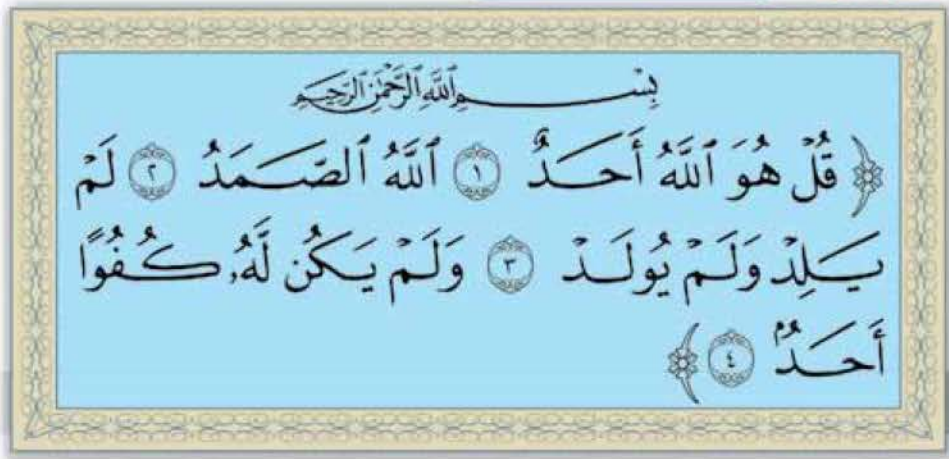 بِسْمِ ٱللَّهِ ٱلرَّحْمَٰنِ ٱلرَّحِيمِ
﴿ قُلْ هُوَ ٱللَّهُ أَحَدٌ ١ ٱللَّهُ ٱلصَّمَدُ ٢ لَمْ
يَلِدْ وَلَمْ يُولَدْ ٣ وَلَمْ يَكُن لَّهُۥ كُفُوًا
أَحَدٌۢ ٤ ﴾